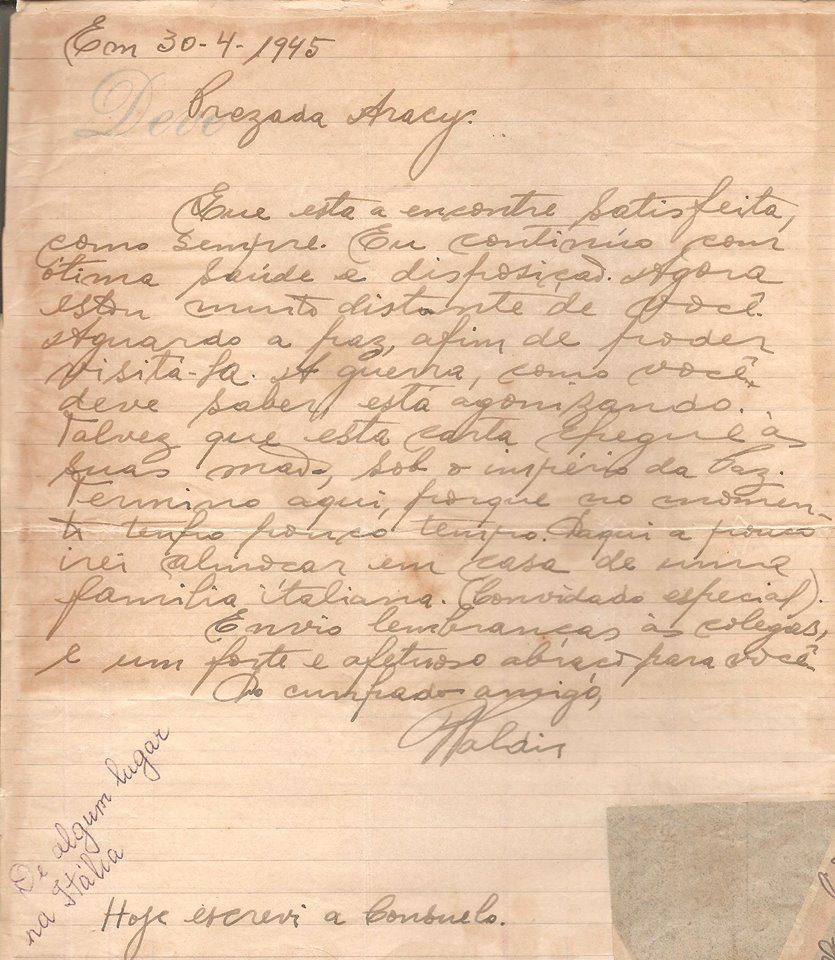 Em 30-4-1945
Deve
Prezada Aracy.
Que esta a encontre satisfeita,
como sempre. Eu continúo com
ótima saúde e disposição. Agora
estou muito distante de você.
Aguardo a paz, afim de poder
visitá-la. A guerra, como você
deve saber, está agonizando.
Talvez que esta carta chegue às
suas mãos, sob o império da Paz.
Termino aqui, porque no momen-
to tenho pouco tempo. Daqui a pouco
irei almoçar em casa de uma
familia italiana. (Convidado especial).
Envio lembranças às colegas,
e um forte e afetuoso abraço para você
Do cunhado amigo,
Waldir
De algum lugar
na Itália
Hoje escrevi a Consuelo.